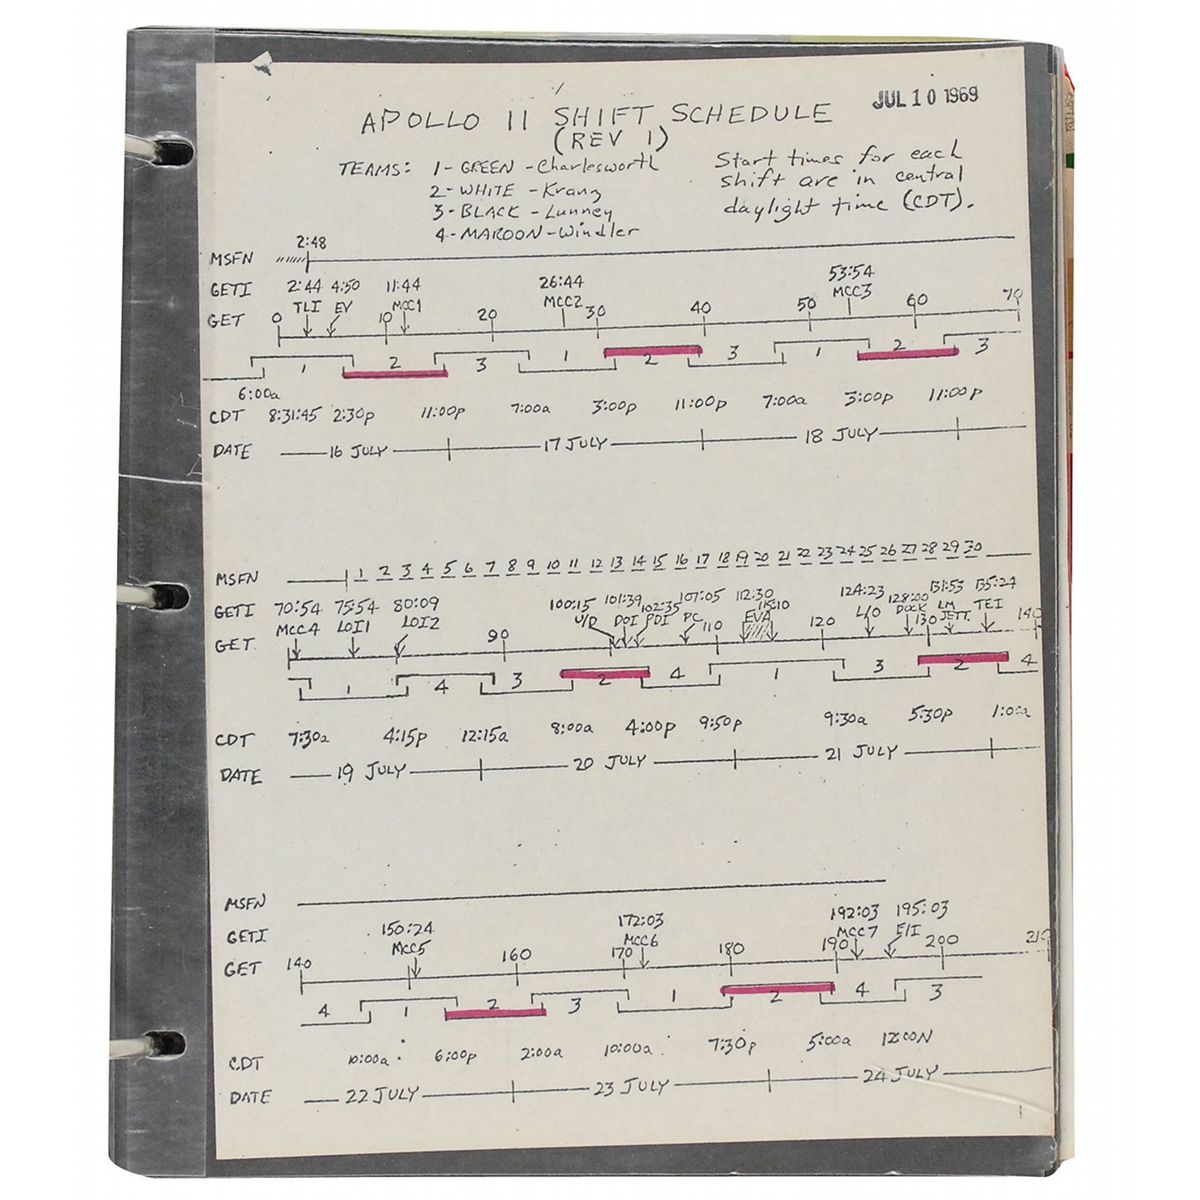 JUL 10 1969
APOLLO 11 SHIFT SCHEDULE
(REV 1)
TEAMS: 1-GREEN-Charlesworth
2-WHITE-Kranz
3-BLACK-Lunney
4-MAROON-Windler
Start times for each
shift are in central
daylight time (CDT).
2:48
MSFN
GETI 2:44 4:50 11:44 26:44 53:54
TLI EV MCC1 MCC2 MCC3
GET 0 10 20 30 40 50 60 70
1 2 3 1 2 3 1 2 3
6:00a
CDT 8:31:45 2:30p 11:00p 7:00a 3:00p 11:00p 7:00a 3:00p 11:00p
DATE 16 JULY 17 JULY 18 JULY
MSFN 1 2 3 4 5 6 7 8 9 10 11 12 13 14 15 16 17 18 19 20 21 22 23 24 25 26 27 28 29 30
GETI 70:54 75:54 80:09 100:15 101:39 102:35 107:05 112:30 115:10 124:23 128:00 131:53 135:24
MCC4 LOI1 LOI2 U/D DOI PDI PC EVA L/O DOCK LM JETT. TEI
GET 90 110 120 130 140
1 4 3 2 4 1 3 2 4
CDT 7:30a 4:15p 12:15a 8:00a 4:00p 9:50p 9:30a 5:30p 1:00a
DATE 19 JULY 20 JULY 21 JULY
MSFN
GETI 150:24 172:03 192:03 195:03
MCC5 MCC6 MCC7 E/I
GET 140 160 170 180 190 200 210
4 1 2 3 1 2 4 3
CDT 10:00a 6:00p 2:00a 10:00a 7:30p 5:00a 12:00N
DATE 22 JULY 23 JULY 24 JULY